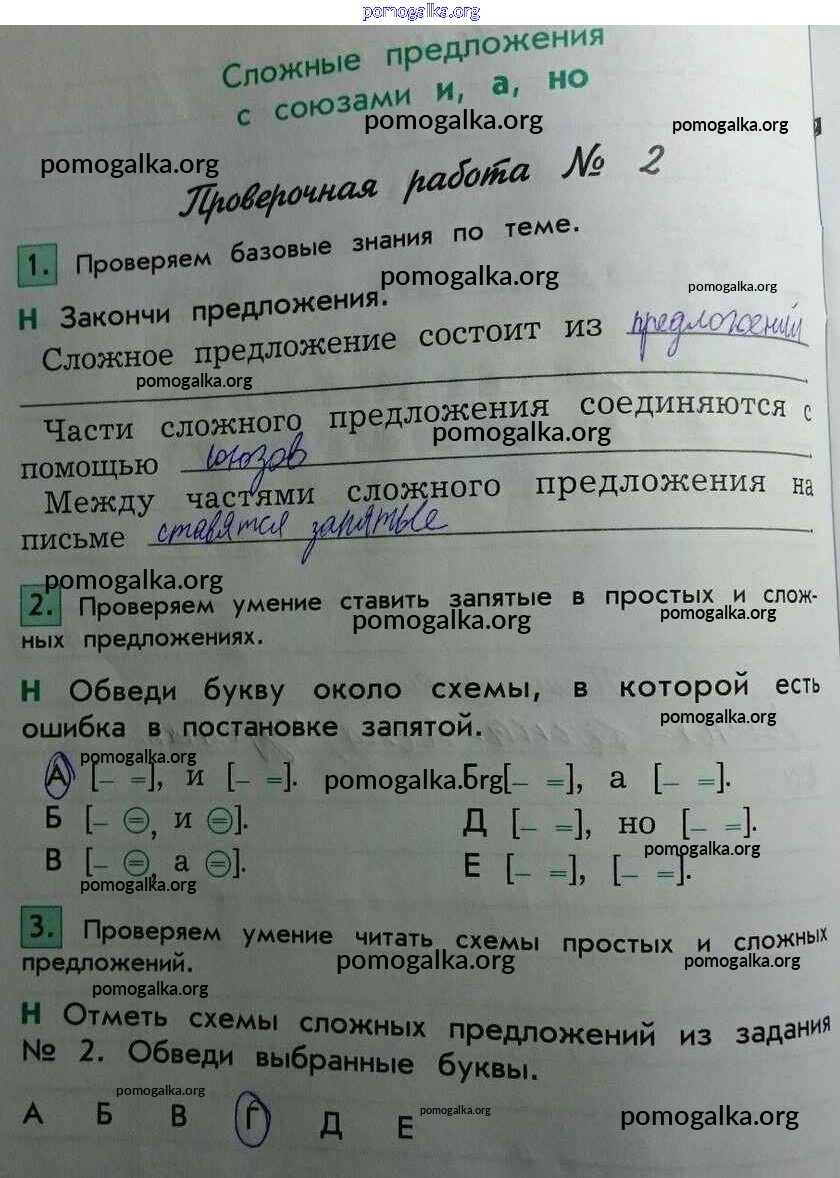 pomogalka.org
Сложные предложения
с союзами и, а, но
pomogalka.org pomogalka.org
pomogalka.org
Проверочная работа № 2
1. Проверяем базовые знания по теме.
pomogalka.org pomogalka.org
Н Закончи предложения.
Сложное предложение состоит из предложений
pomogalka.org
Части сложного предложения соединяются с
pomogalka.org
помощью союзов
Между частями сложного предложения на
письме ставятся запятые
pomogalka.org
2. Проверяем умение ставить запятые в простых и слож-
pomogalka.org pomogalka.org
ных предложениях.
Н Обведи букву около схемы, в которой есть
ошибка в постановке запятой.
pomogalka.org
pomogalka.org
А [– =], и [– =]. pomogalka.org Б [– =], а [– =].
Б [– =, и =]. Д [– =], но [– =].
pomogalka.org
В [– =, а =]. Е [– =], [– =].
pomogalka.org
3. Проверяем умение читать схемы простых и сложных
предложений. pomogalka.org pomogalka.org
pomogalka.org
Н Отметь схемы сложных предложений из задания
№ 2. Обведи выбранные буквы.
pomogalka.org
А Б В Г Д Е pomogalka.org pomogalka.org